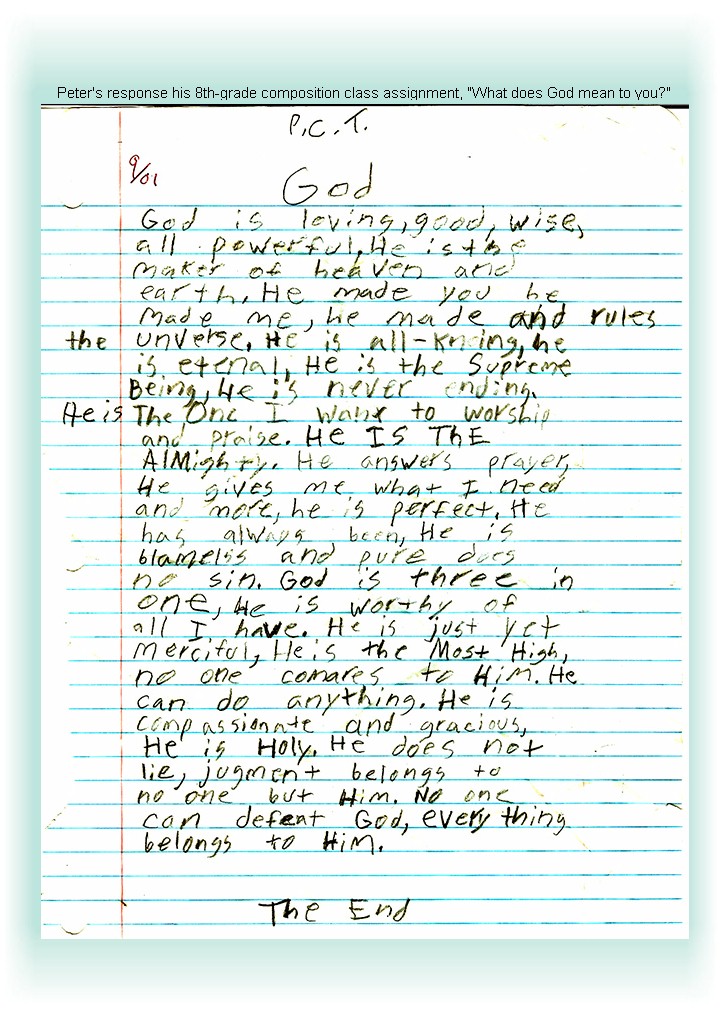 Peter's response his 8th-grade composition class assignment, "What does God mean to you?"
P.C.T.
9/01
God
God is loving, good, wise,
all powerful, He is the
maker of heaven and
earth. He made you he
made me, he made and rules
the unverse. He is all-knoing, he
is etenal, He is the Supreme
Being, He is never ending.
He is The One I want to worship
and praise. HE IS THE
AlMighty. He answers prayer,
He gives me what I need
and more, he is perfect. He
has always been, He is
blameless and pure does
no sin. God is three in
one, He is worthy of
all I have. He is just yet
merciful, He is the Most High,
no one comares to Him. He
can do anything. He is
compassionate and gracious,
He is Holy. He does not
lie, jugment belongs to
no one but Him. No one
can defeat God, every thing
belongs to Him.
The End